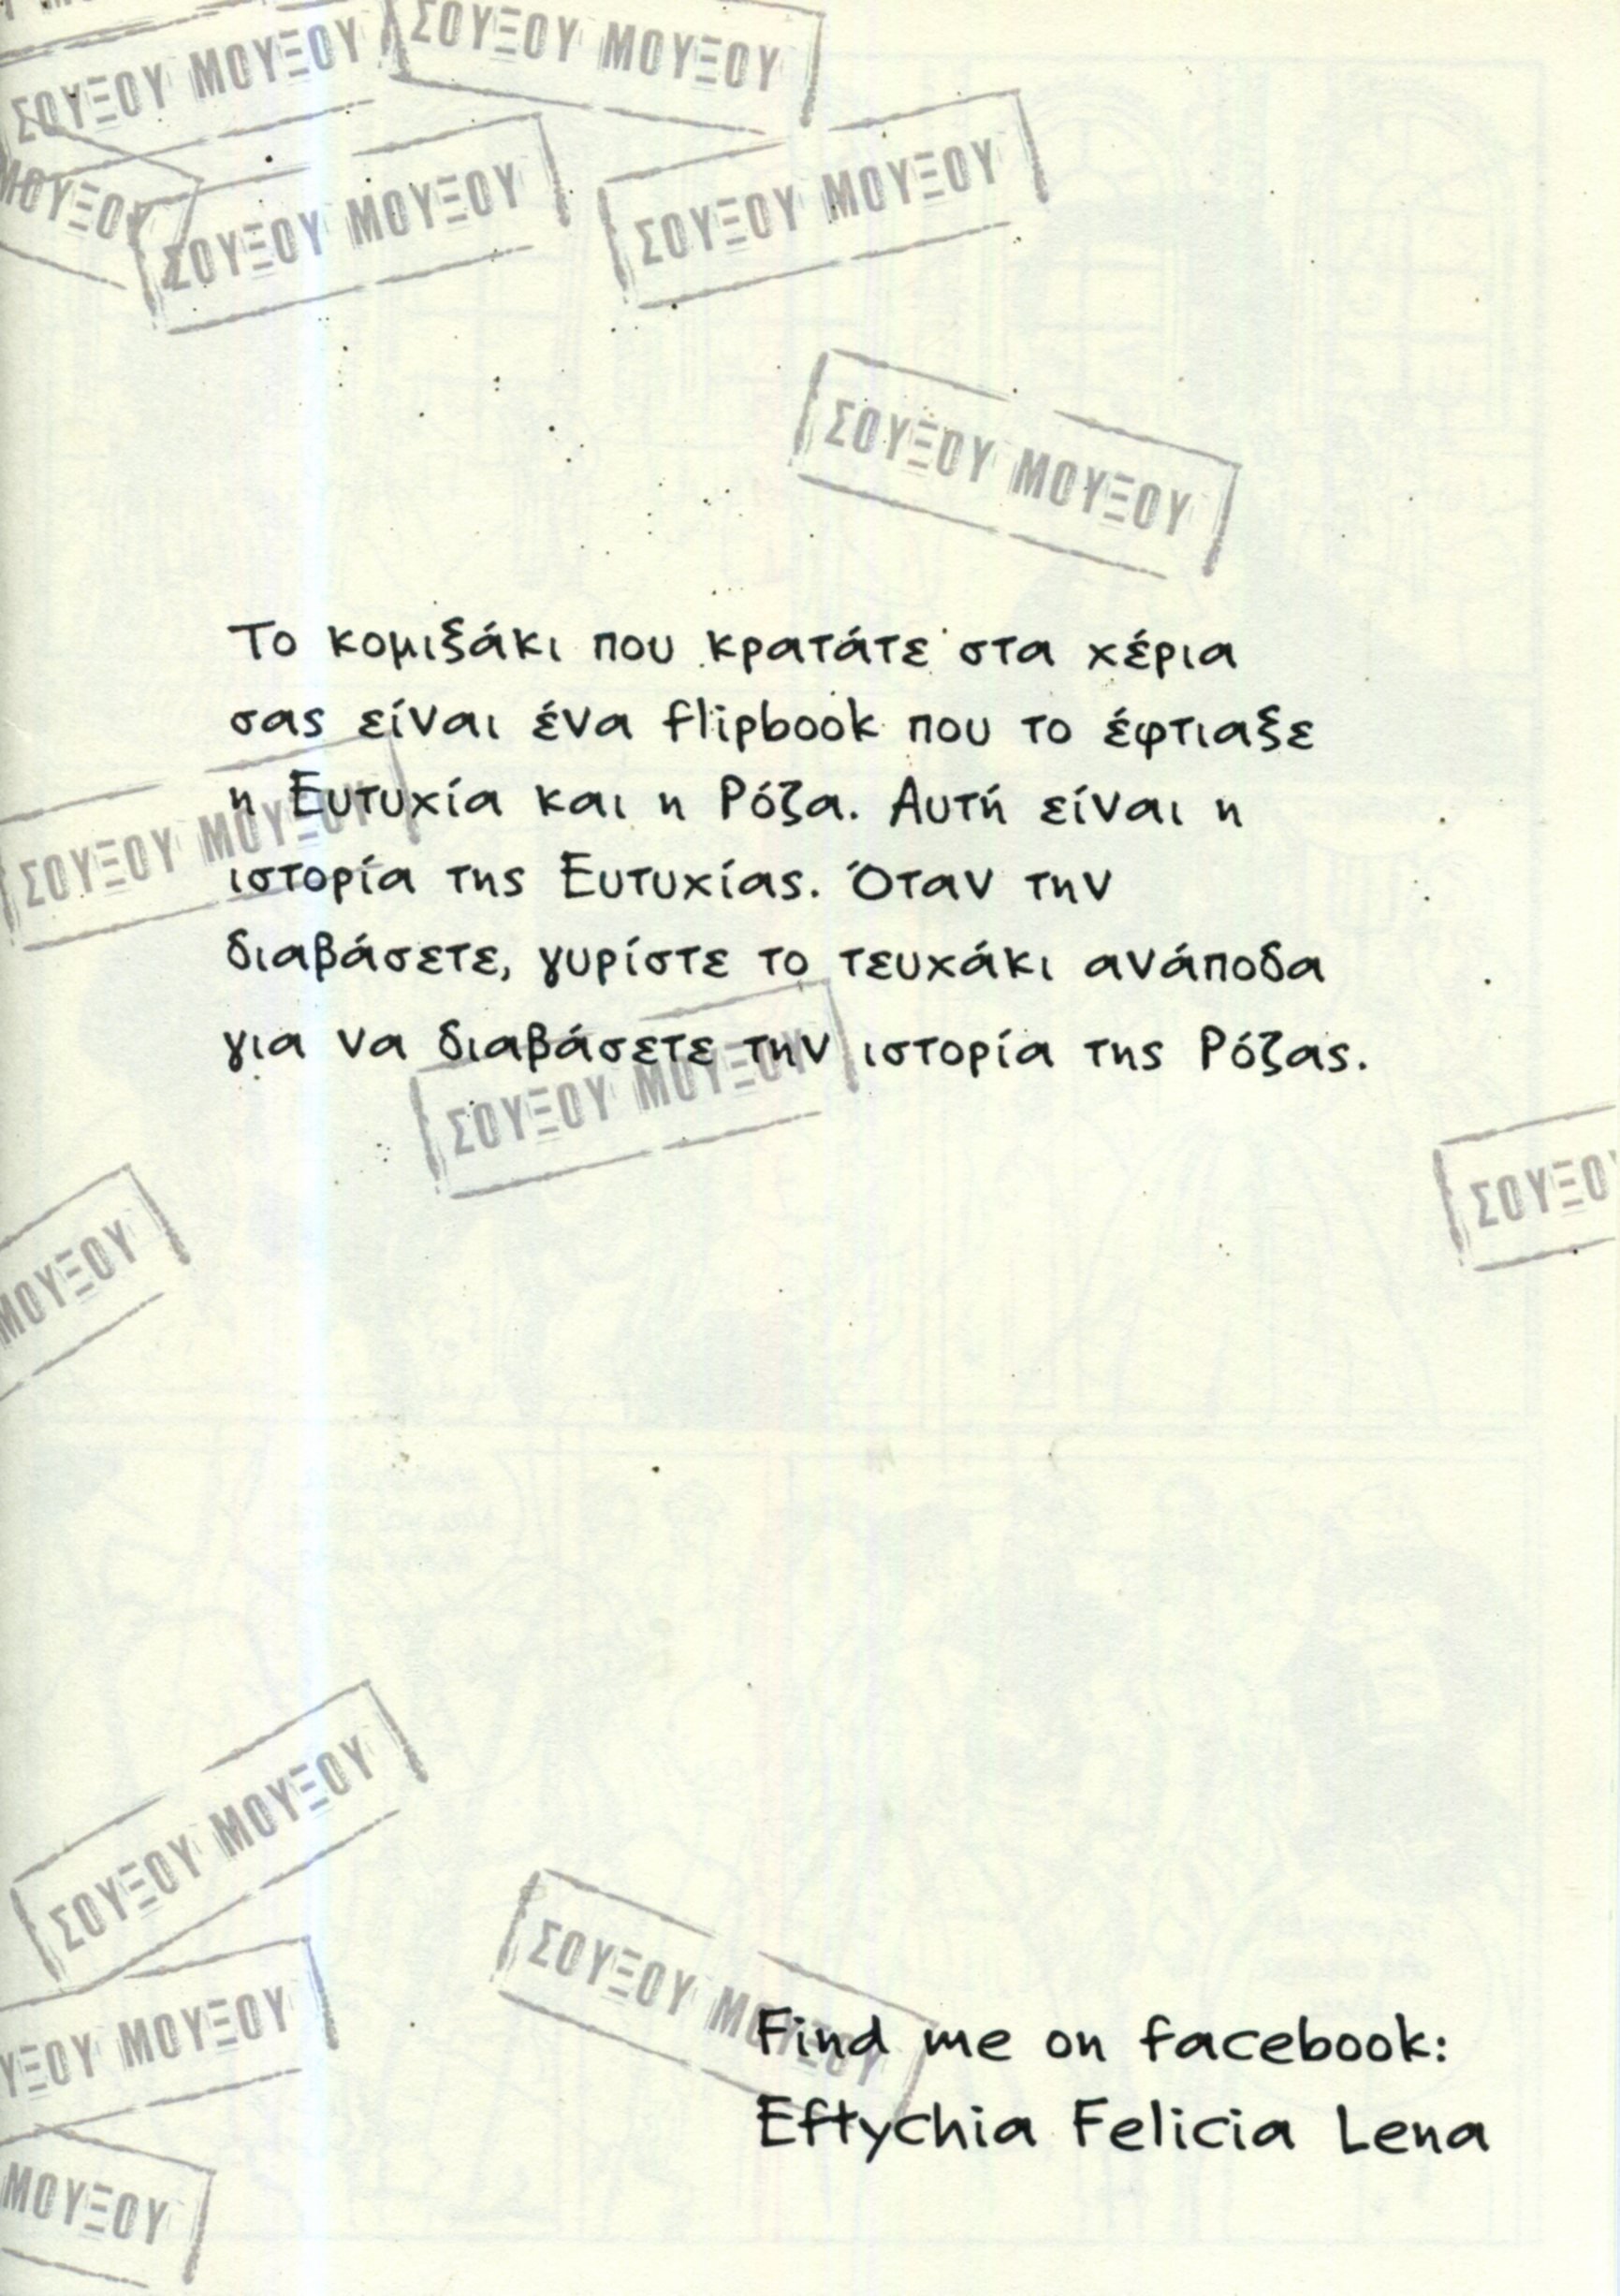 ΣΟΥΞΟΥ ΜΟΥΞΟΥ
ΣΟΥΞΟΥ ΜΟΥΞΟΥ
ΜΟΥΞΟΥ
ΣΟΥΞΟΥ ΜΟΥΞΟΥ
ΣΟΥΞΟΥ ΜΟΥΞΟΥ
ΣΟΥΞΟΥ ΜΟΥΞΟΥ
Το κομιξάκι που κρατάτε στα χέρια
σας είναι ένα flipbook που το έφτιαξε
η Ευτυχία και η Ρόζα. Αυτή είναι η
ιστορία της Ευτυχίας. Όταν την
διαβάσετε, γυρίστε το τευχάκι ανάποδα
για να διαβάσετε την ιστορία της Ρόζας.
ΣΟΥΞΟΥ ΜΟΥΞΟΥ
ΣΟΥΞΟΥ ΜΟΥΞΟΥ
ΣΟΥΞΟΥ
ΜΟΥΞΟΥ
ΣΟΥΞΟΥ ΜΟΥΞΟΥ
ΣΟΥΞΟΥ ΜΟΥΞΟΥ
ΥΞΟΥ ΜΟΥΞΟΥ
ΜΟΥΞΟΥ
Find me on facebook:
Eftychia Felicia Lena